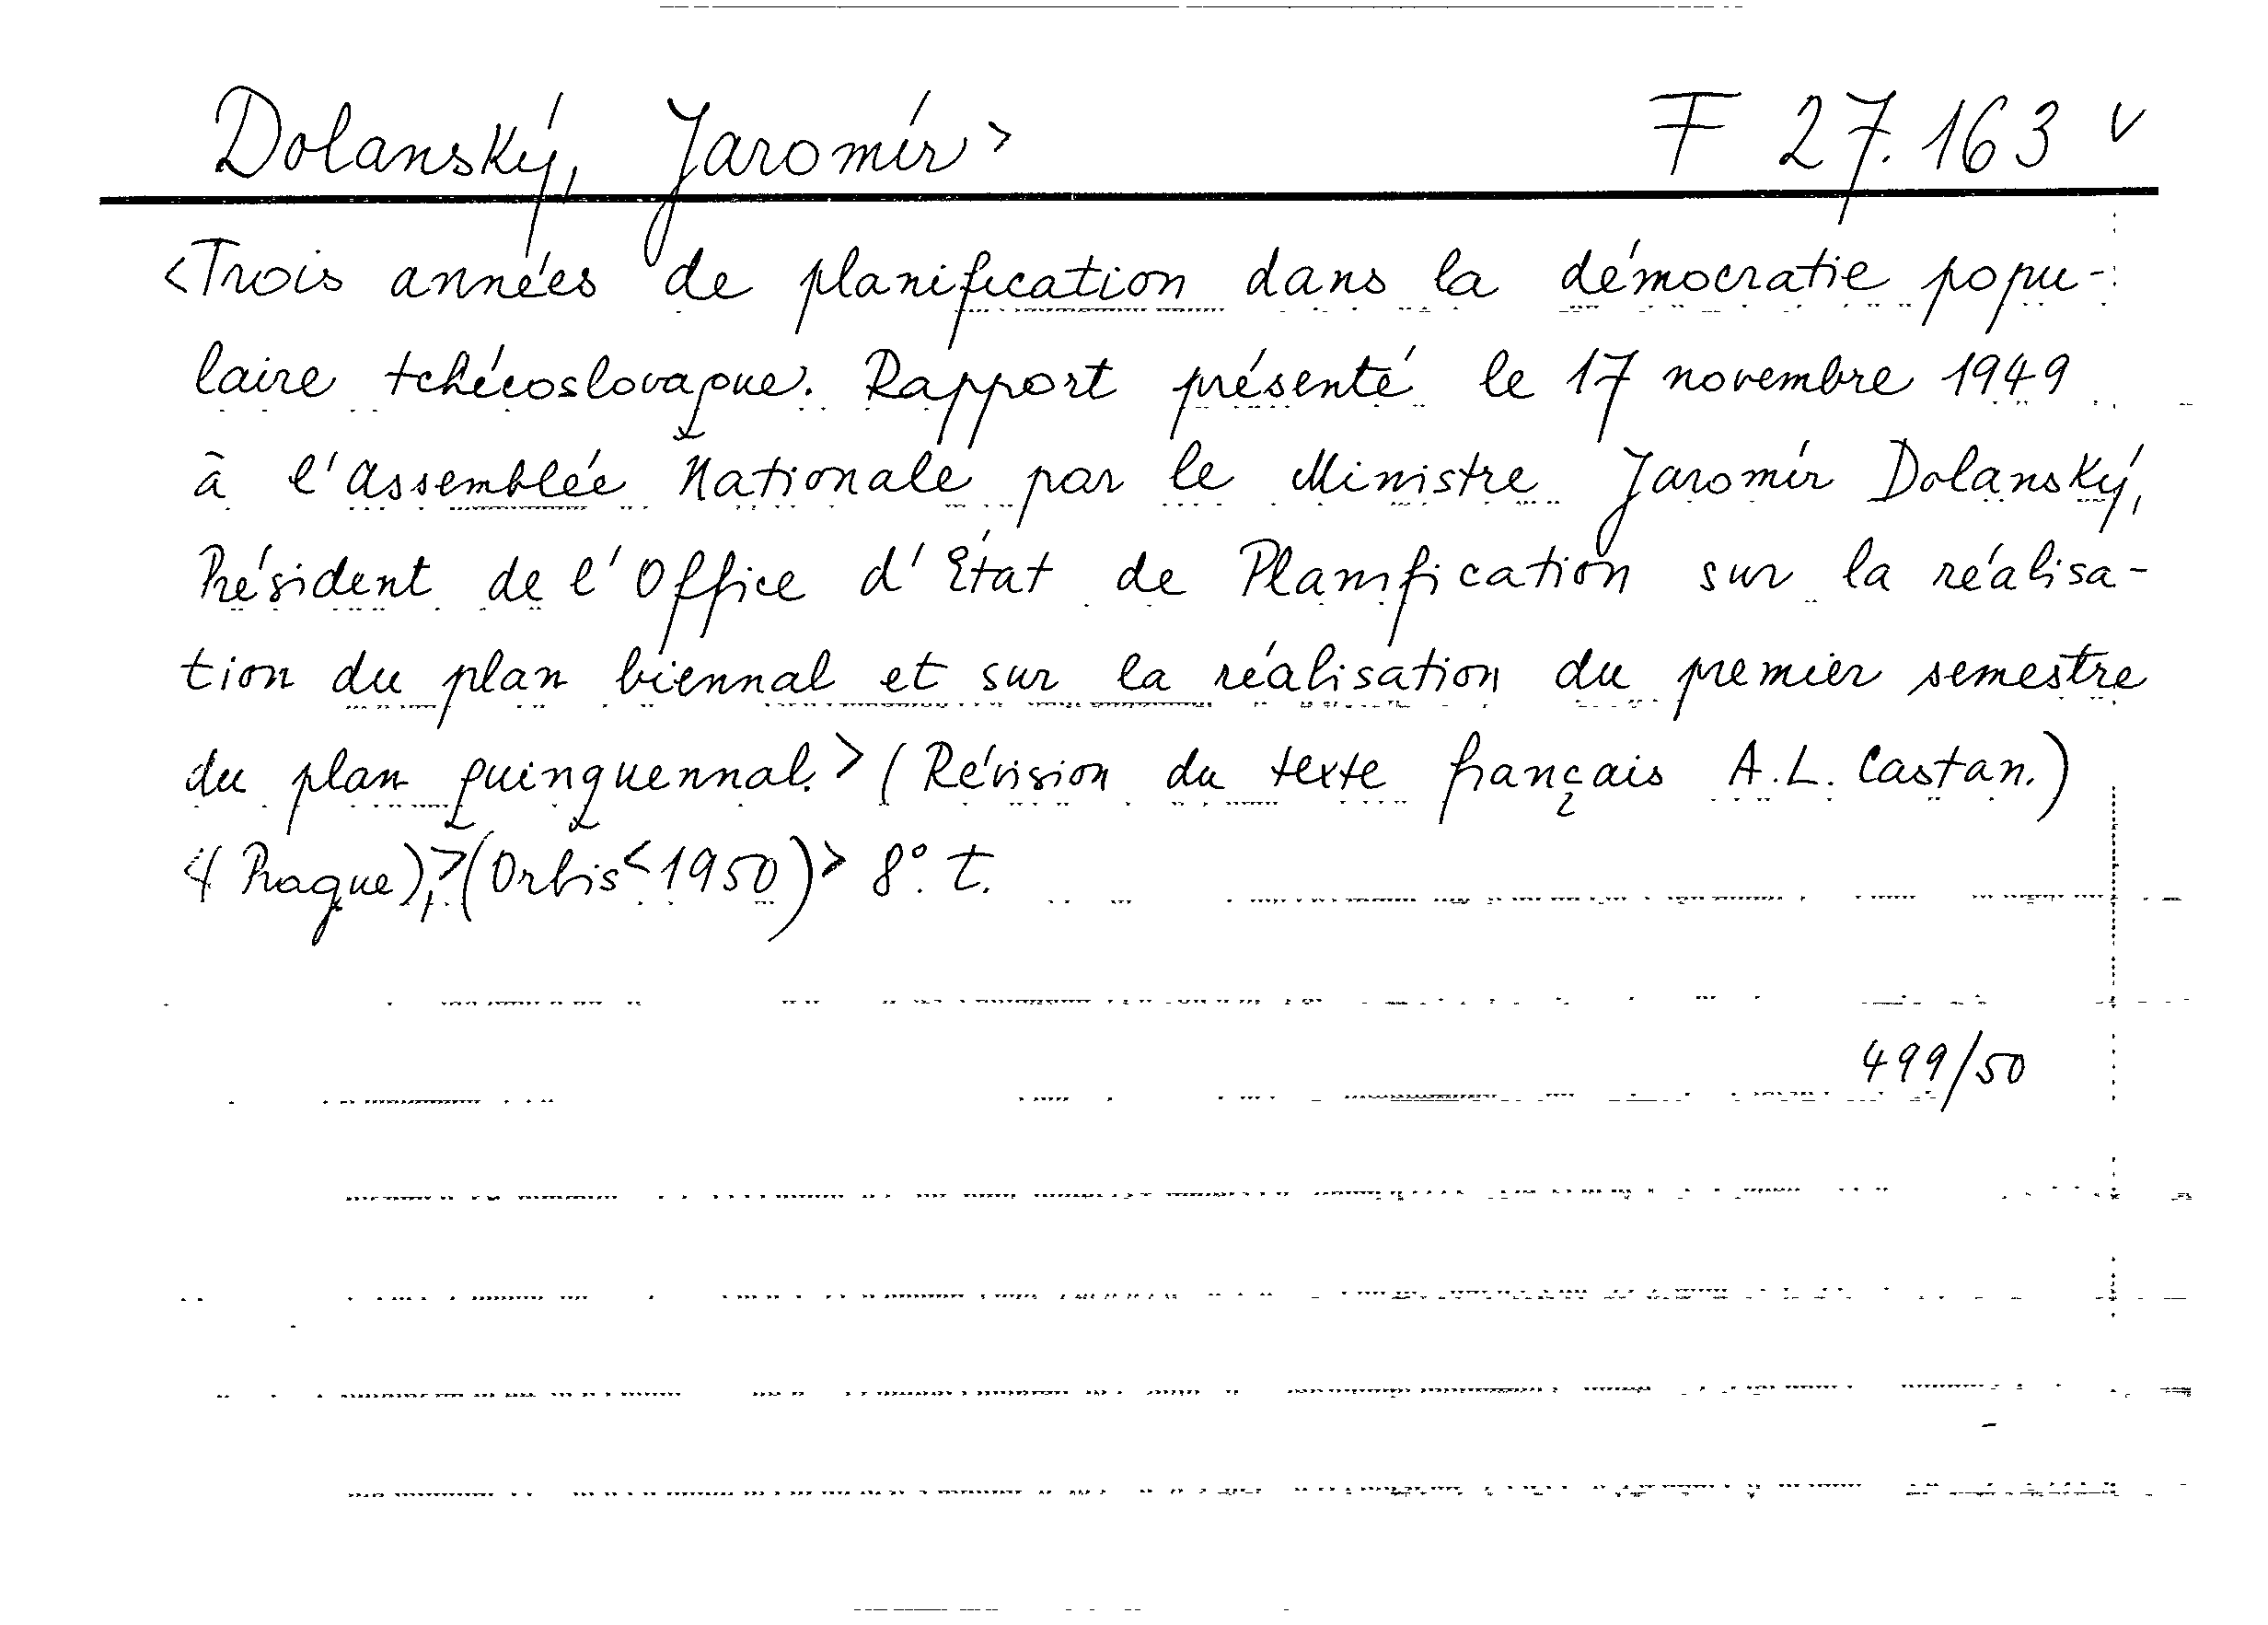 Dolanský, Jaromír> F 27.163 v
<Trois années de planification dans la démocratie popu-
laire tchécoslovaque. Rapport présenté le 17 novembre 1949
à l'Assemblée Nationale par le Ministre Jaromír Dolanský,
Président de l'Office d'État de Planification sur la réalisa-
tion du plan biennal et sur la réalisation du premier semestre
du plan quinquennal.> (Révision du texte français A.L. Castan.)
<(Prague),> (Orbis <1950)> 8°. t.
499/50